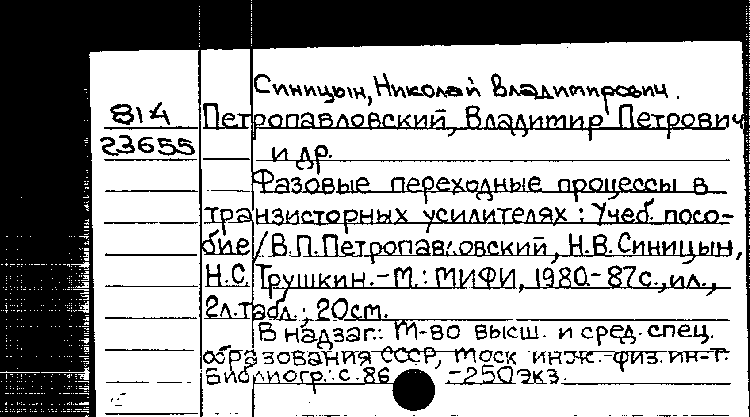 Синицын, Николай Владимирович.
814 Петропавловский, Владимир Петрович
23655 и др.
Фазовые переходные процессы в
транзисторных усилителях : Учеб. посо-
бие / В.П. Петропавловский, Н.В. Синицын,
Н.С. Трушкин. - М. : МИФИ, 1980. - 87с., ил.,
2л. табл.; 20см.
В надзаг.: М-во высш. и сред. спец.
образования СССР, Моск инж.-физ. ин-т.
Библиогр.: с. 86 - 250экз.